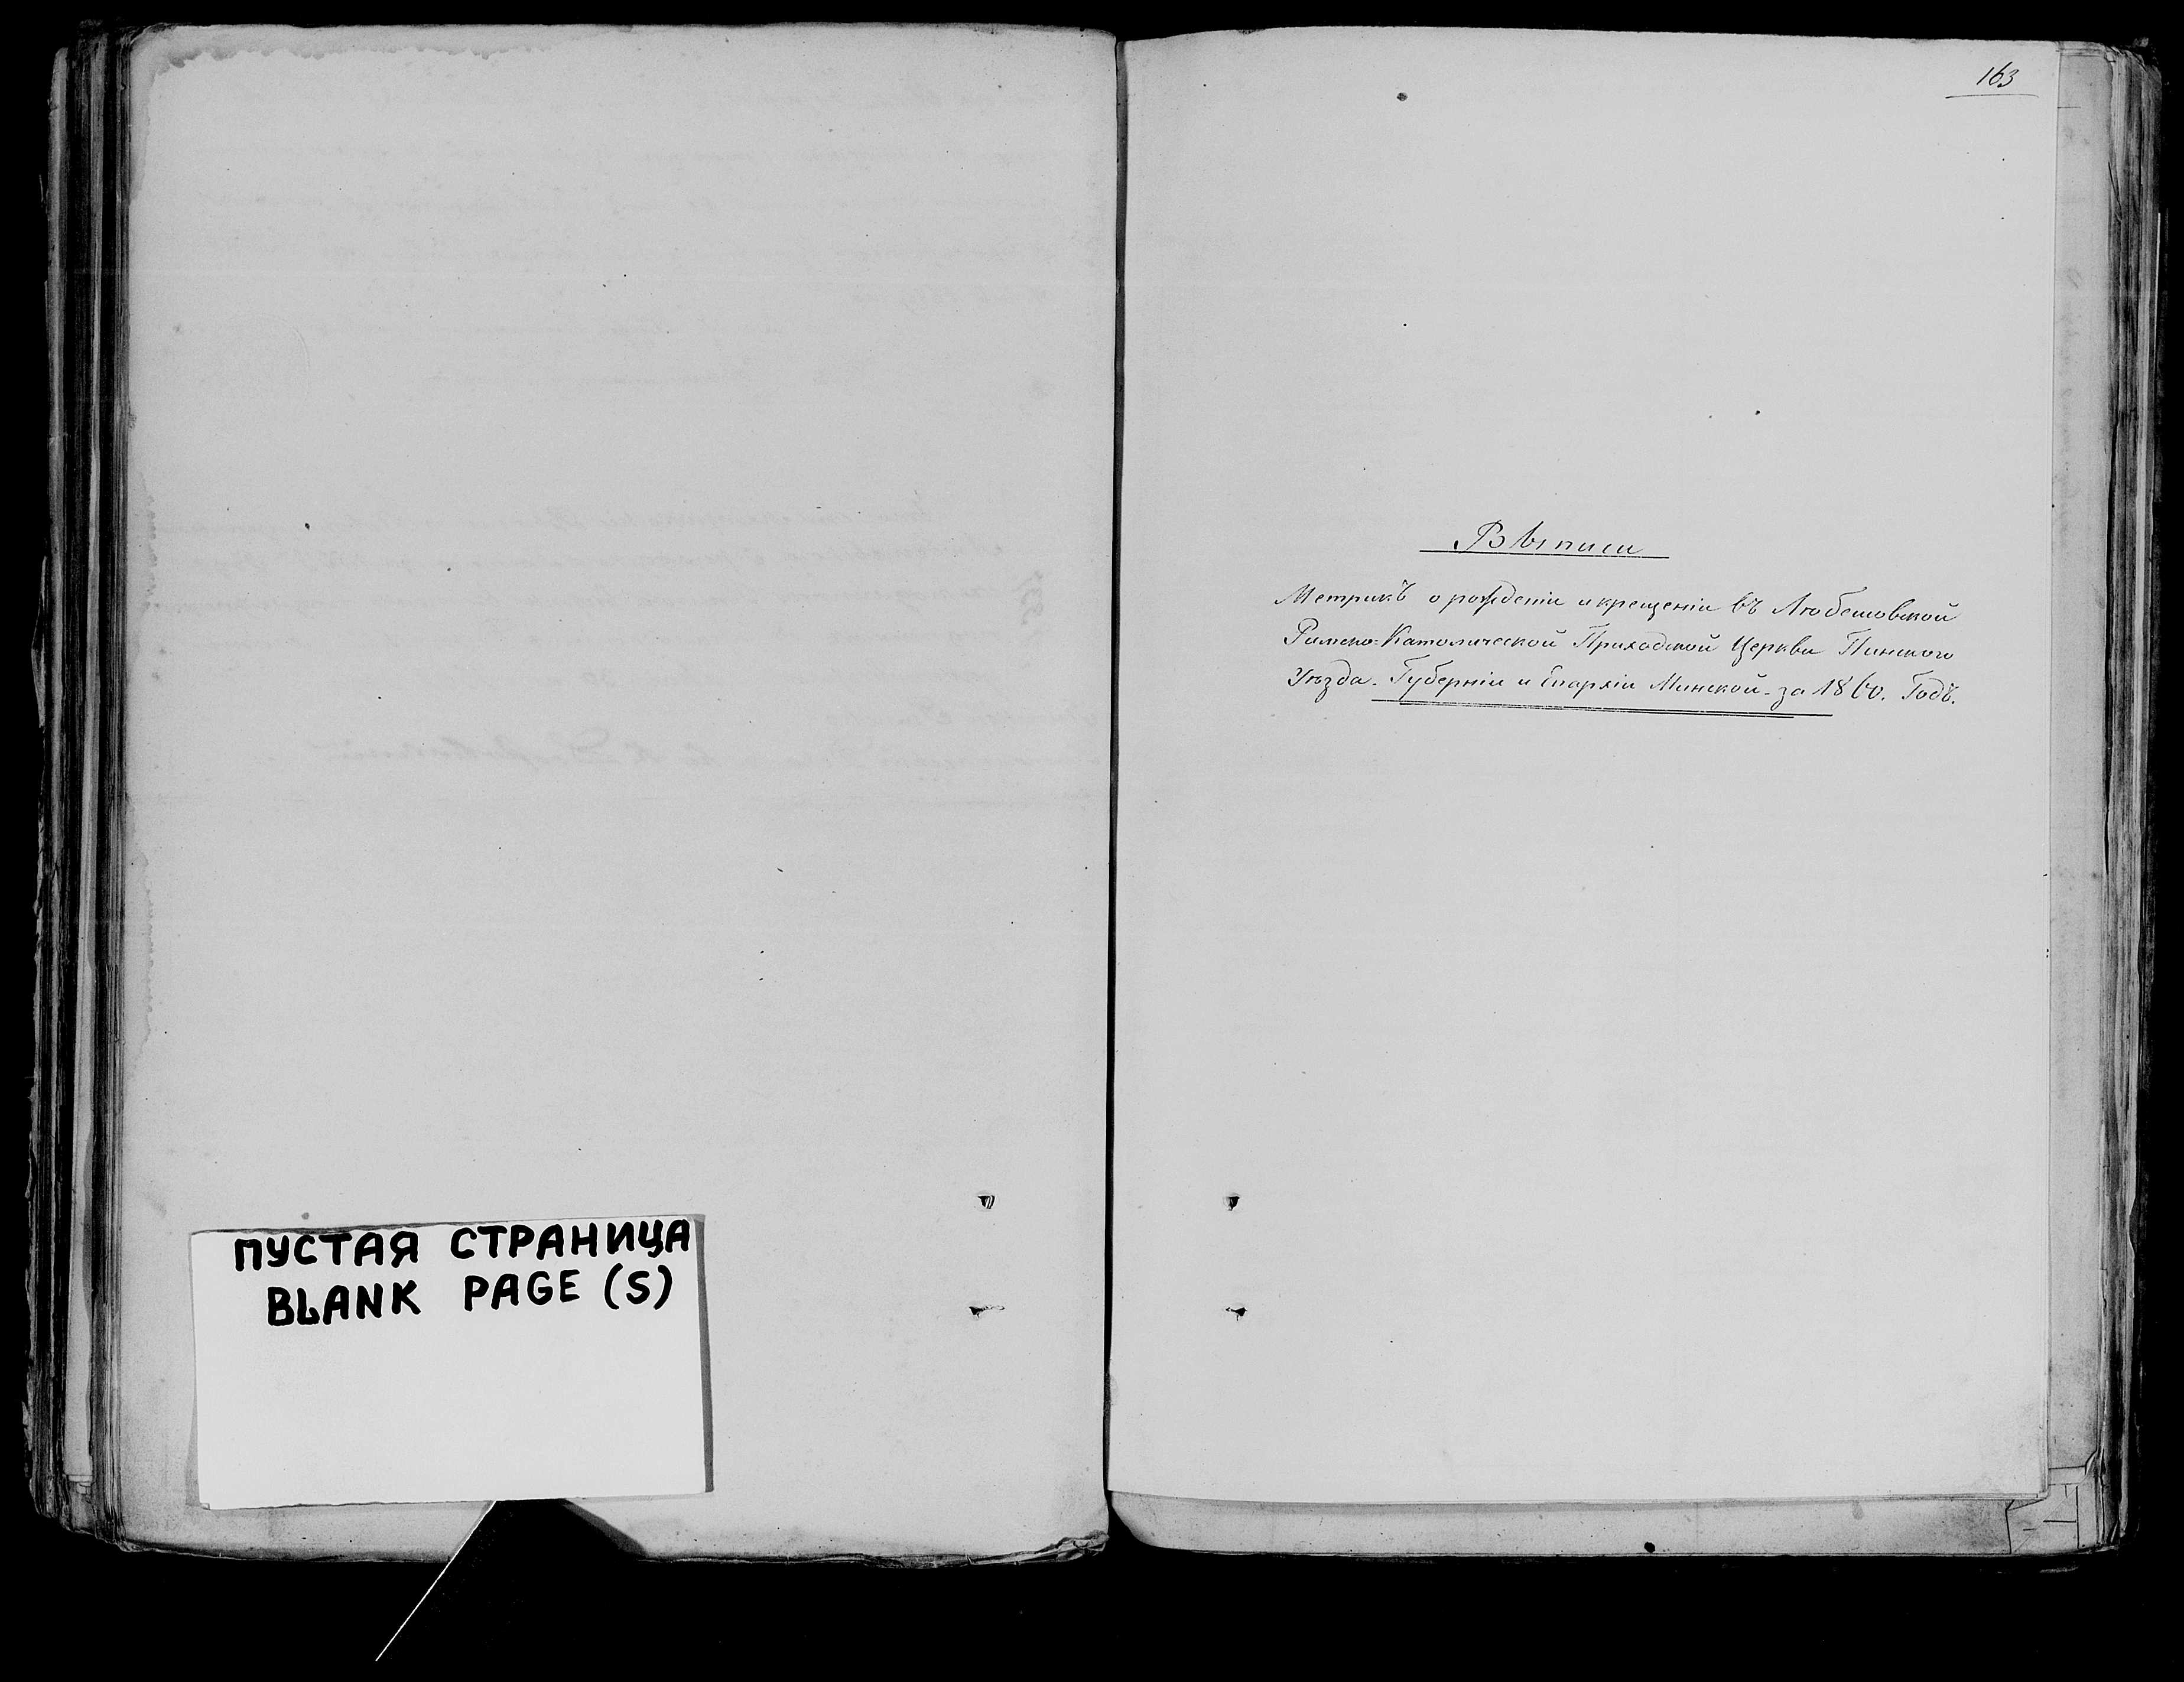 ПУСТАЯ СТРАНИЦА
BLANK PAGE (S)
163
Выписи
Метрикъ о рожденіи и крещеніи въ Любешовской
Римско-Католической Приходской Церкви Пинского
Уѣзда. Губерніи и Епархіи Минской - за 1860. Годъ.